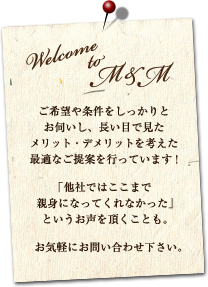 Welcome
to
M&M
ご希望や条件をしっかりと
お伺いし、長い目で見た
メリット・デメリットを考えた
最適なご提案を行っています！
「他社ではここまで
親身になってくれなかった」
というお声を頂くことも。
お気軽にお問い合わせ下さい。